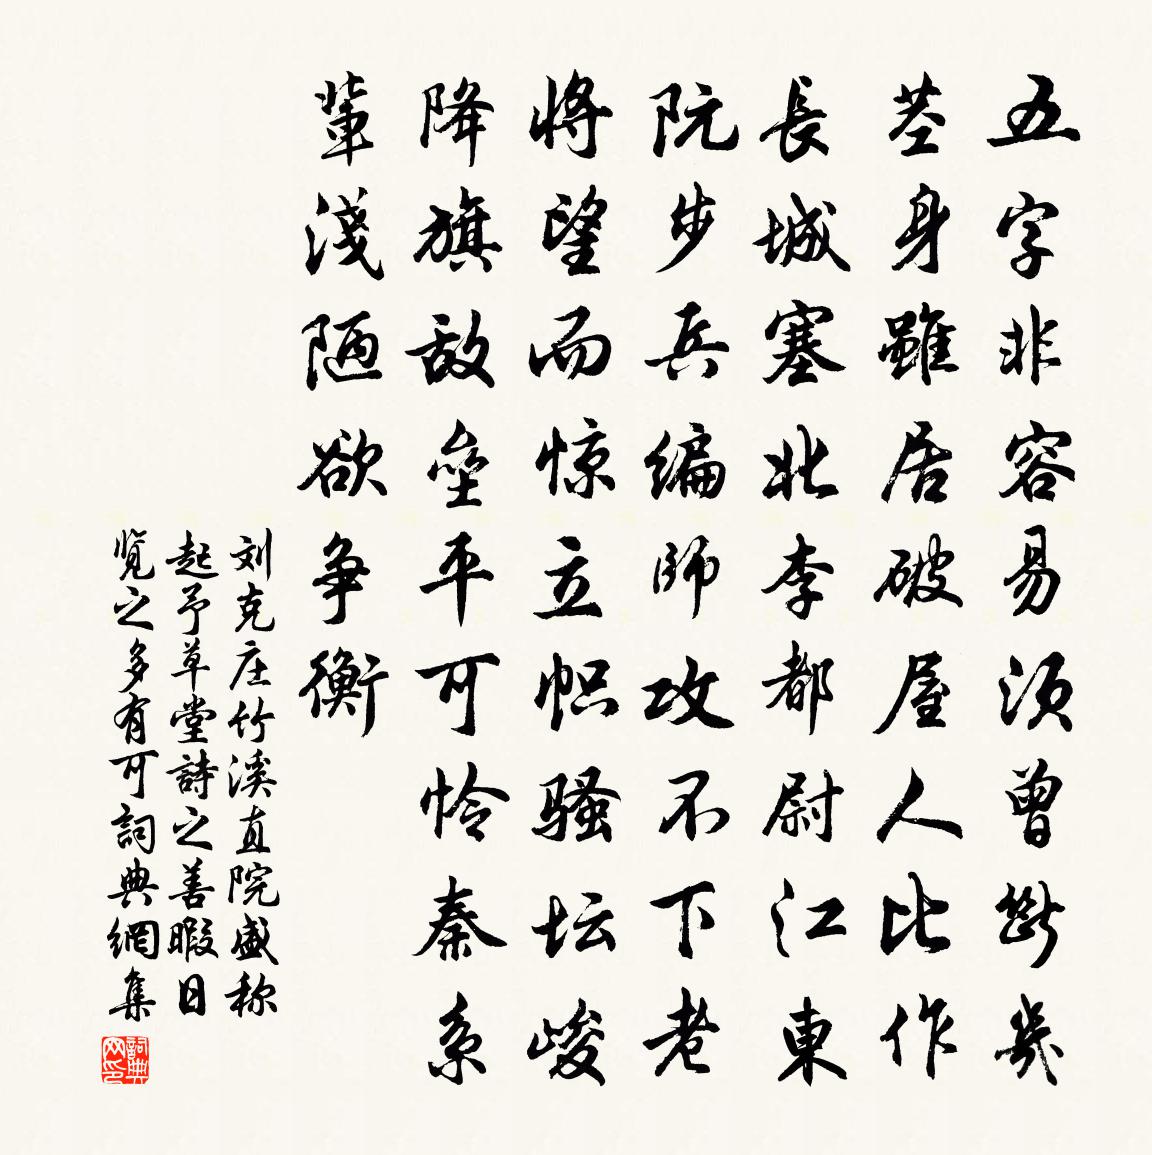 五字非容易須曾斷幾
茎身雖居破屋人比作
長城塞北李都尉江東
阮步兵編師攻不下老
將望而惊立帜骚坛峻
降旗敌壘平可怜秦系
輩淺陋欲争衡
刘克庄竹溪直院盛称
起予草堂詩之善暇日
览之多有可詞典網集
詞典网印